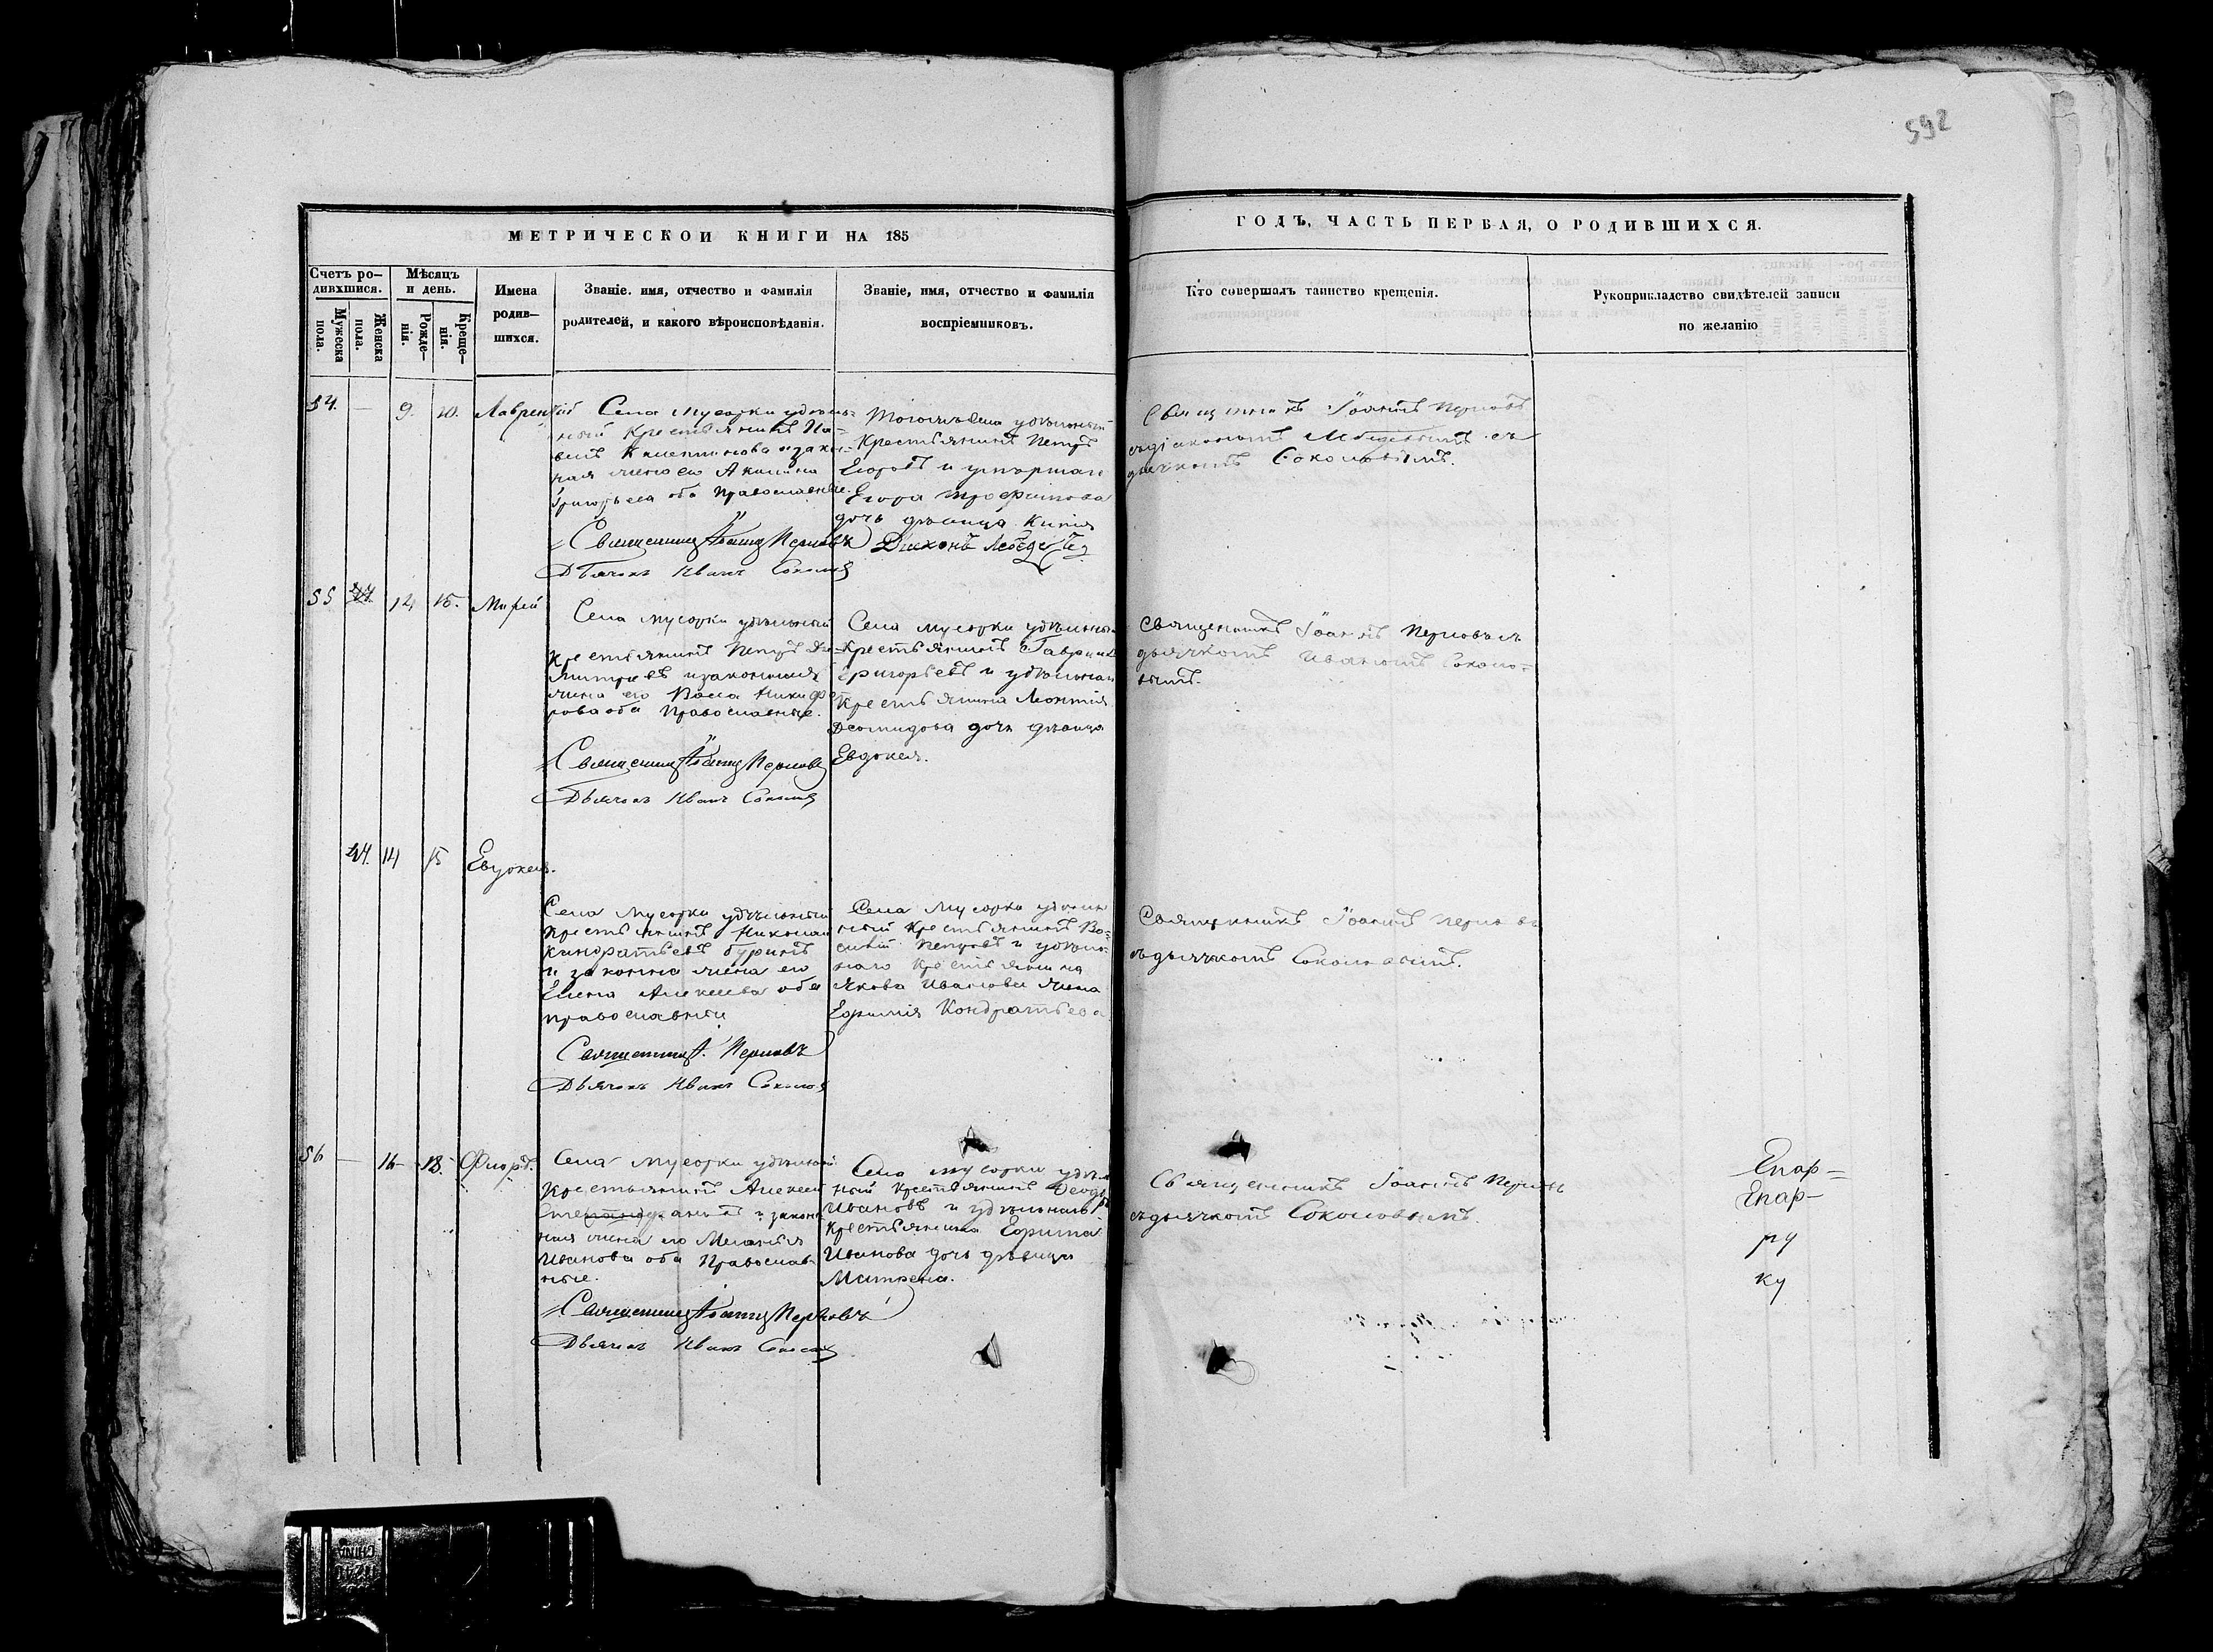 592
МЕТРИЧЕСКОЙ КНИГИ НА 185
ГОДЪ, ЧАСТЬ ПЕРВАЯ, О РОДИВШИХСЯ.
Счетъ ро-
дившшися.
Мужеска
пола.
Женска
пола.
Мѣсяцъ
и день.
Рожде-
нія.
Креще-
нія.
Имена
родив-
шихся.
Званіе. имя, отчество и фамилія
родителей, и какого вѣроисповѣданія.
Званіе, имя, отчество и фамилія
воспріемниковъ.
Кто совершалъ таинство крещенія.
Рукоприкладство свидѣтелей записи
по желанію
54. — 9. 10. Лаврентій
Села Мусорки удѣль-
ный Крестьянинъ Па-
велъ
жена его Акилина
Григорьева оба Православные.
Священникъ Іоаннъ Перловъ
Дьячокъ Иванъ Соколовъ
удѣльный
Крестьянинъ Петръ
Егоровъ и умершаго
Егора Трофимова
дочь дѣвица
Діаконъ Лебедевъ
Священникъ Іоаннъ Перловъ
съ діакономъ Лебедевымъ съ
дьячкомъ Соколовымъ.
55 14 15. Мокей
Села Мусорки удѣльный
Крестьянинъ Петръ Ди-
митріевъ и законная
жена его Васса Никифо
рова оба Православные.
Священникъ Іоаннъ Перловъ
Дьячокъ Иванъ Соколовъ
Села Мусорки удѣльный
Крестьянинъ Гавриилъ
Григорьевъ и удѣльнаго
Крестьянина Леонтія
Деомидова дочь дѣвица
Евдокея.
Священникъ Іоаннъ Перловъ съ
дьячкомъ Иваномъ Соколо-
вымъ.
44. 14 15 Евдокея.
Села Мусорки удѣльный
Крестьянинъ Николай
Киндратьевъ Буринъ
и законна жена его
Елена Алексеева оба
православныи
Священникъ І. Перловъ
Дьячокъ Иванъ Соколовъ
Села Мусорки удѣль
ный Крестьянинъ Ва-
силій Петровъ и удѣль-
наго Крестьянина
Якова Иванова жена
Ефимія Кондратьева
Священникъ Іоаннъ Перловъ
съ дьячкомъ Соколовымъ.
56 — 16 18 Флоръ.
Села Мусорки удѣльный
Крестьянинъ Алексей
и закон
ная жена его Меланія
Иванова оба Православ
ные.
Священникъ Іоаннъ Перловъ
Дьячокъ Иванъ Соколовъ
Села Мусорки удѣль
ный Крестьянинъ Феодоръ
Ивановъ и удѣльнаго
Крестьянина Ефима
Иванова дочь дѣвица
Матрена.
Священникъ Іоаннъ Перловъ
съ дьячкомъ Соколовымъ.
Епар=
Епар-
ру
ку